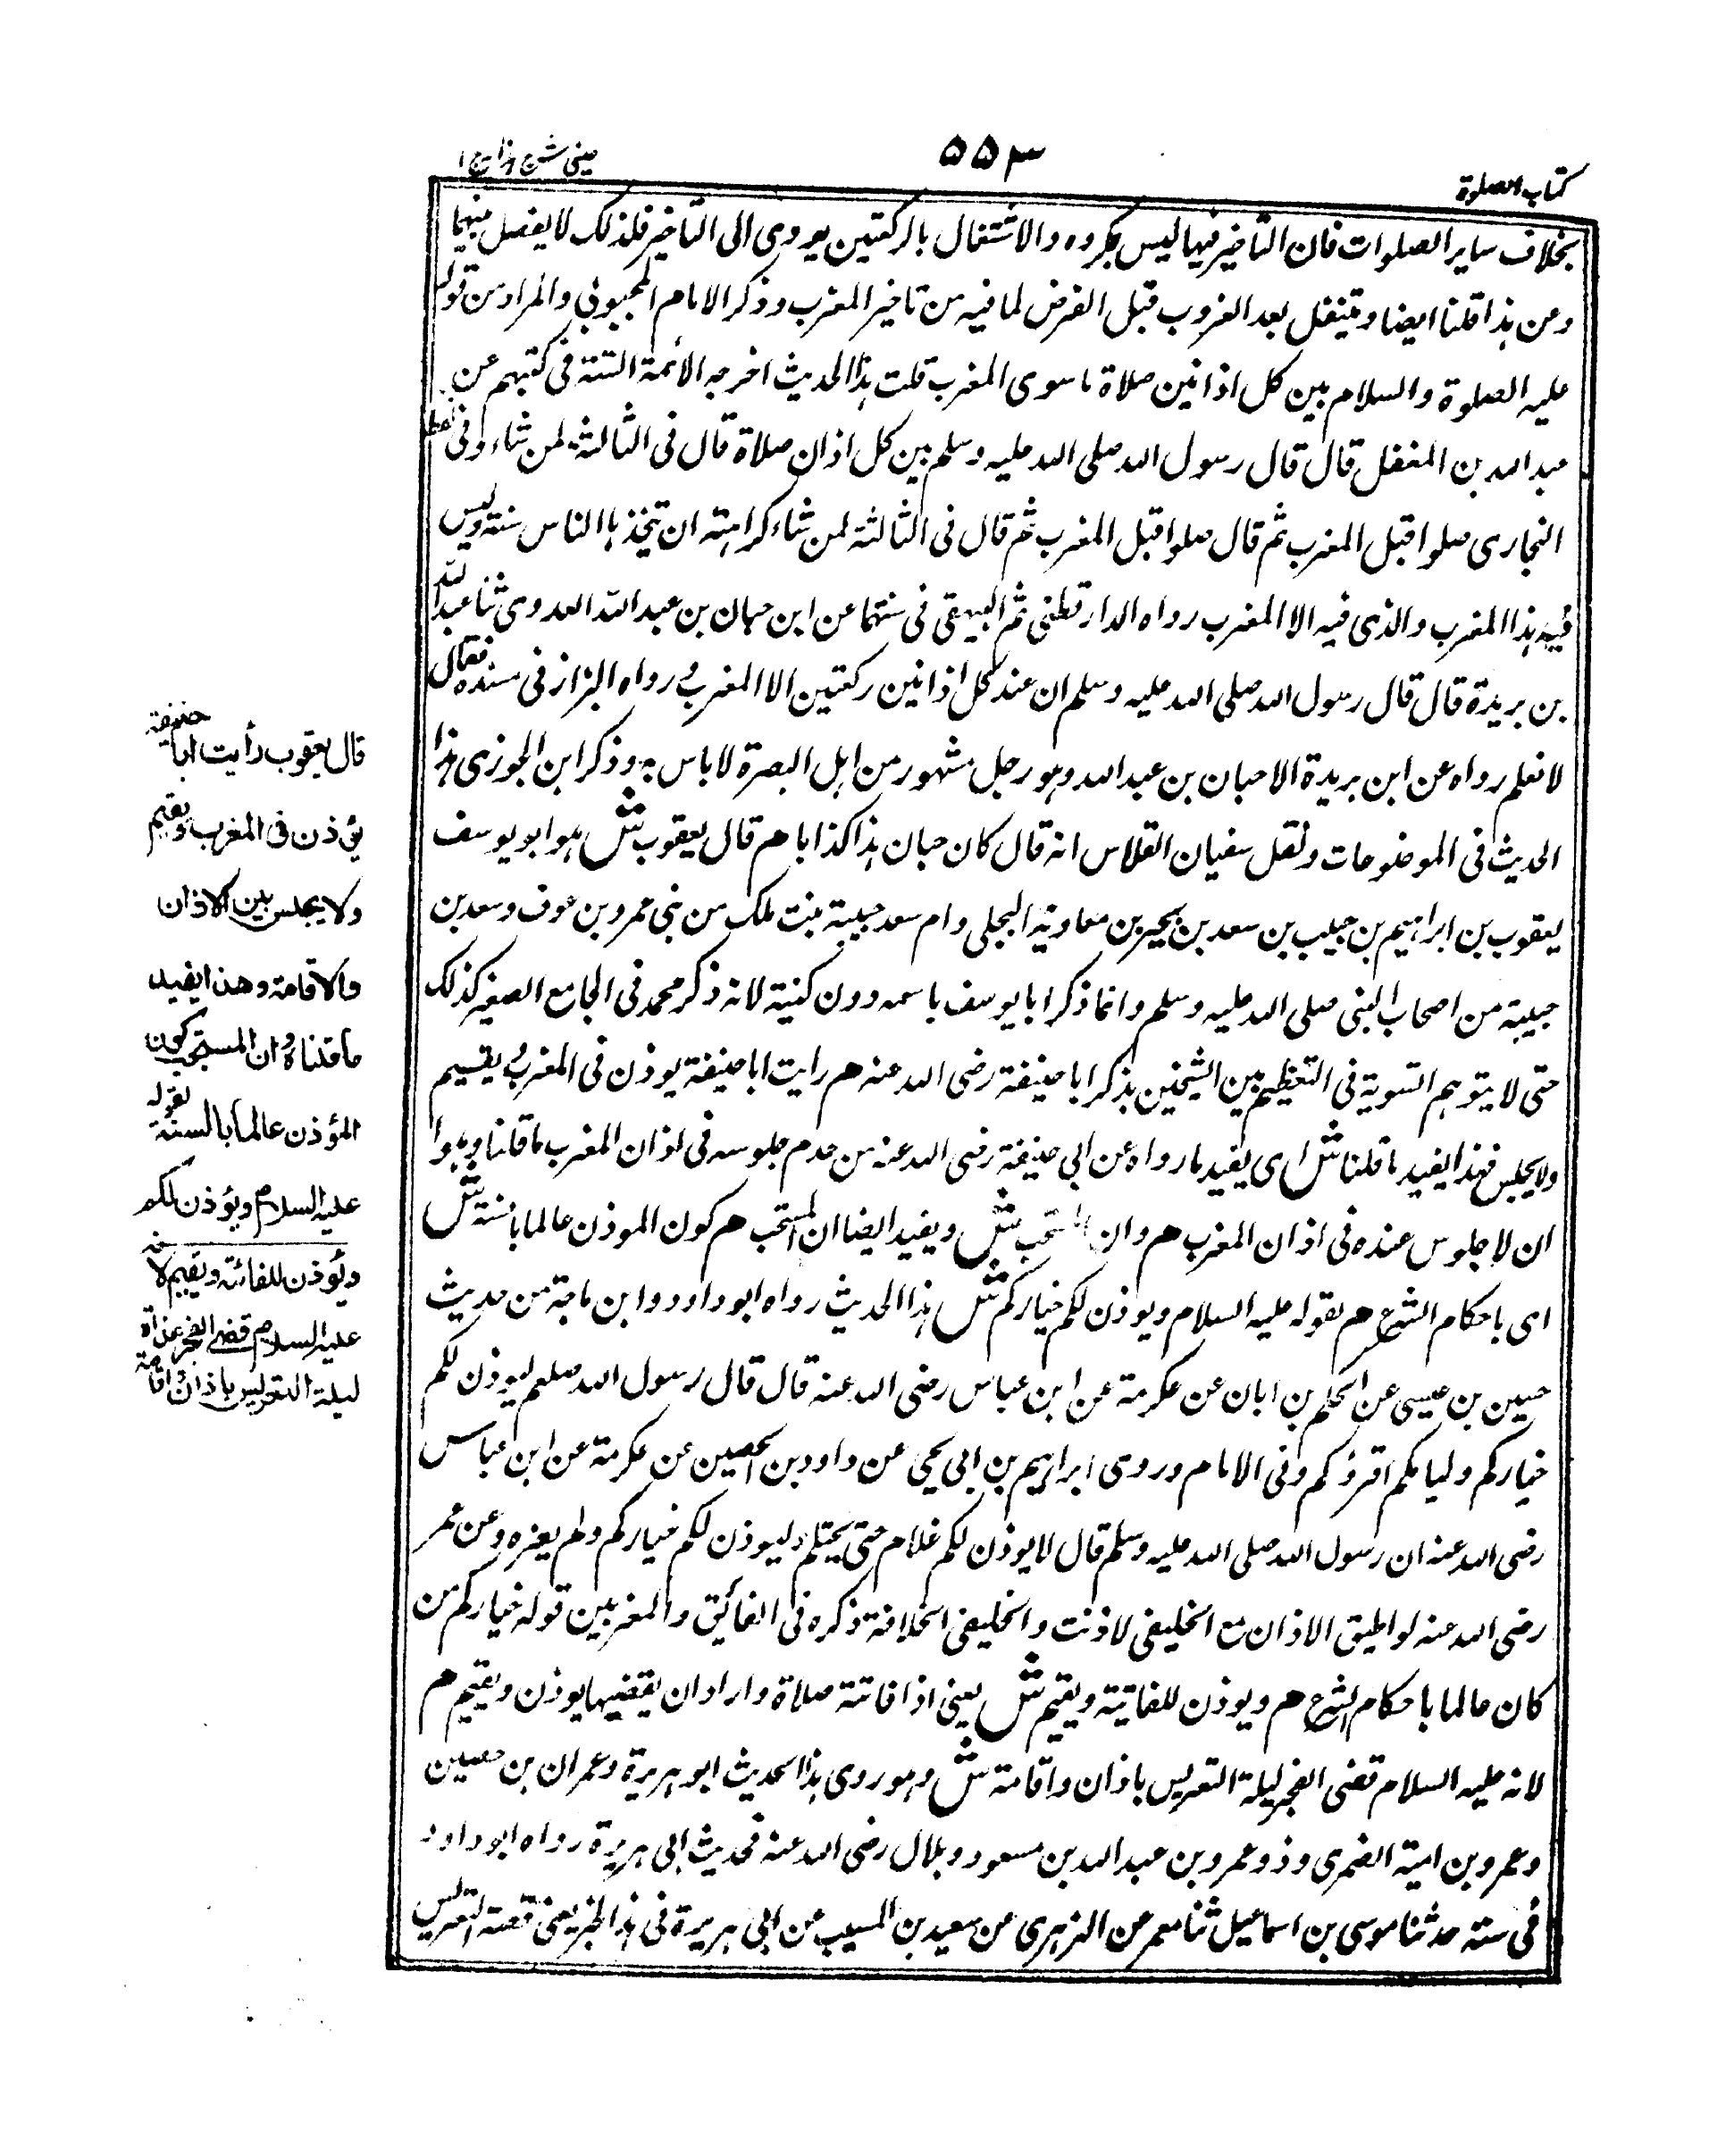 كتاب الصلوة
٥٥٣
عينى شرح هداية ج ١
بخلاف ساير الصلوات فان التأخير فيها ليس بمكروه والاشتغال بالركعتين يودى الى التأخير فلذلك لا يفصل بينهما
ومن هذا قلنا ايضا ويتنفل بعد الغروب قبل الفرض لما فيه من تاخير المغرب وذكر الامام المحبوبي والمراد من قوله
عليه الصلوة والسلام بين كل اذانين صلاة ما سوى المغرب قلت هذا الحديث اخرجه الأئمة الستة فى كتبهم عن
عبد الله بن المغفل قال قال رسول الله صلى الله عليه وسلم بين كل اذان صلاة قال فى الثالثة لمن شاء وفى لفظ
البخارى صلوا قبل المغرب ثم قال صلوا قبل المغرب ثم قال فى الثالثة لمن شاء كراهته ان يتخذها الناس سنة وليس
فيه هذا المغرب والذى فيه الا المغرب رواه الدارقطنى ثم البيهقى فى سننهما عن ابن حبان بن عبد الله العدوى ثنا عبد الله
بن بريدة قال قال رسول الله صلى الله عليه وسلم ان عند كل اذانين ركعتين الا المغرب ورواه البزار فى مسنده فقال
لا نعلم رواه عن ابن بريدة الا حبان بن عبد الله وهو رجل مشهور من اهل البصرة لاباس به وذكر ابن الجوزى هذا
الحديث فى الموضوعات ونقل سفيان الفلاس انه قال كان حبان هذا كذابا هم قال يعقوب ش هو ابو يوسف
يعقوب بن ابراهيم بن حبيب بن سعد بن بحير بن معاوية البجلى وام سعد حبيبة بنت ملك من بنى عمرو بن عوف وسعد بن
حبيبة من اصحاب النبى صلى الله عليه وسلم وانما ذكر ابا يوسف باسمه دون كنية لانه ذكر محمد فى الجامع الصغير كذلك
حتى لا يتوهم التسوية فى التعظيم بين الشيخين بذكر ابا حنيفة رضى الله عنه هم رايت ابا حنيفة يوذن فى المغرب ويقسيم
ولا يجلس فهذا يفيد ما قلنا ش اى يفيد ما رواه عن ابي حنيفة رضى الله عنه من عدم جلوسه فى اذان المغرب ما قلنا وهو
ان لا جلوس عنده فى اذان المغرب هم وان المستحب ش ويفيد ايضا ان المستحب هم كون الموذن عالما بالسنة ش
اى باحكام الشرع هم بقوله عليه السلام ويوذن لكم خياركم ش هذا الحديث رواه ابو داود وابن ماجة من حديث
حسين بن عيسى عن الحكم بن ابان عن عكرمة عن ابن عباس رضى الله عنه قال قال رسول الله صلعم ليوذن لكم
خياركم وليامكم اقروكم وفى الامام وروى ابراهيم بن ابى يحيى عن داود بن الحصين عن عكرمة عن ابن عباس
رضى الله عنه ان رسول الله صلى الله عليه وسلم قال لا يوذن لكم غلام حتى يحتلم وليوذن لكم خياركم ولم يعزه وعن عمر
رضى الله عنه لو اطيق الاذان مع الخليفى لاذنت والخليفى الخلافة ذكره فى الفائيق والمغربين قوله خياركم من
كان عالما باحكام الشرع هم ويوذن للفاتية ويقيم ش يعنى اذا فاتته صلاة واراد ان يقضيها يوذن ويقيم هم
لانه عليه السلام قضى الفجر ليلة التعريس باذان واقامة ش وهو روى هذا الحديث ابو هريرة وعمران بن حصين
وعمرو بن امية الضمرى وذو عمرو بن عبد الله بن مسعود وبلال رضى الله عنه فحديث ابى هريرة رواه ابو داود
فى سننه حدثنا موسى بن اسماعيل ثنا معمر عن الزهرى عن سعيد بن المسيب عن ابى هريرة فى هذا الخبر يعنى قصة التعريس
قال يعقوب رأيت ابا حنيفة
يؤذن فى المغرب ويقيم
ولا يجلس بين الاذان
والاقامة وهذا يفيد
ما قلناه وان المستحب كون
المؤذن عالما بالسنة لقوله
عليه السلام ويؤذن لكم
ويؤذن للفائتة ويقيم لانه
عليه السلام قضى الفجر غداة
ليلة التعريس باذان واقامة